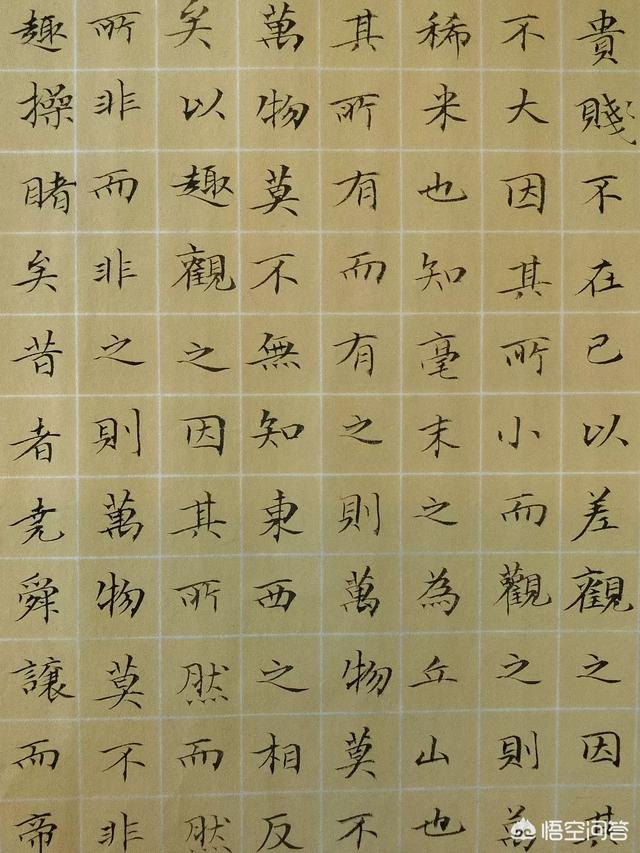 貴賤不在已以差觀之因其
不大因其所小而觀之則萬
稀米也知毫末之為丘山也
其所有而有之則萬物莫不
萬物莫不無知東西之相反
矣以趣觀之因其所然而然
所非而非之則萬物莫不非
趣操睹矣昔者堯舜讓而帝
悟空问答